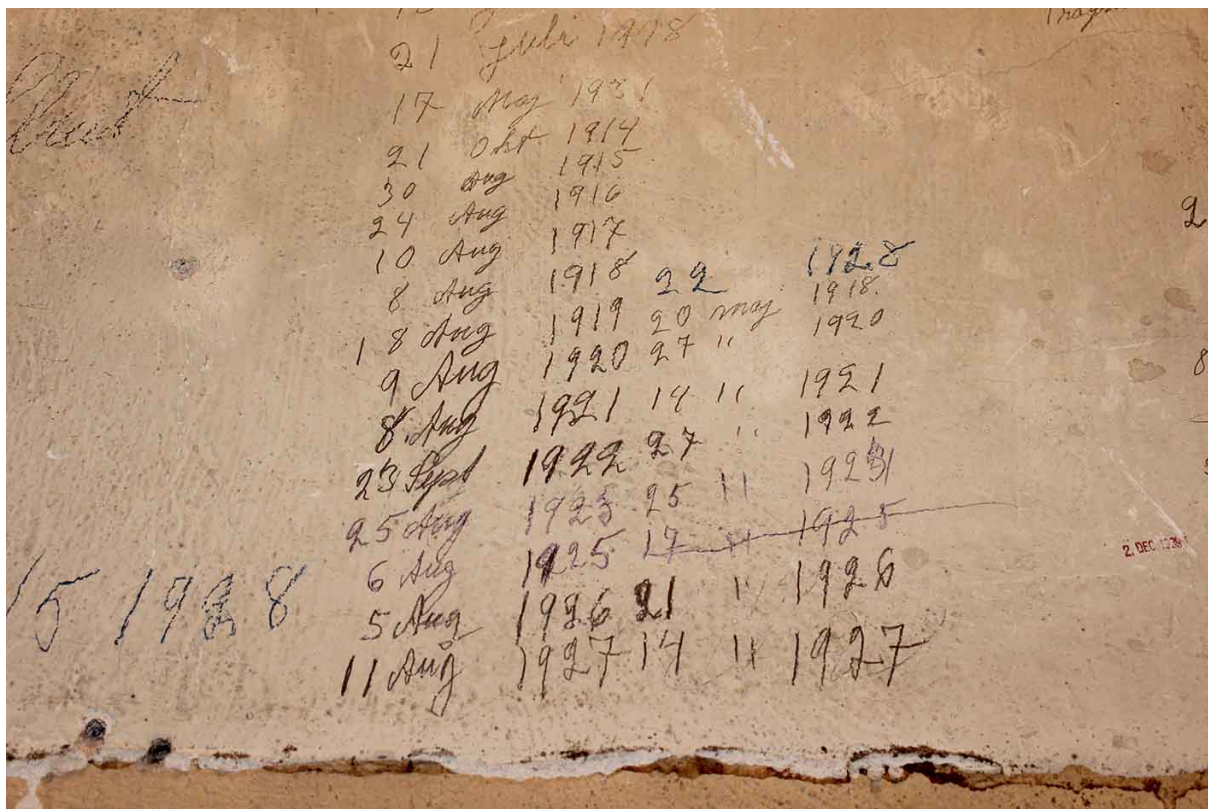 21 Juli 1918
17 Maj 1931
21 Okt 1914
30 Aug 1915
24 Aug 1916
10 Aug 1917
8 Aug 1918 22 1928
18 Aug 1919 20 maj 1918.
9 Aug 1920 27 " 1920
8. Aug 1921 14 " 1921
23 Sept 1922 27 " 1922
25 Aug 1923 25 11
6 Aug 1925 17 11 1925
5 Aug 1926 21 11 1926
11 Aug 1927 14 11 1927
15 1928
2. DEC.